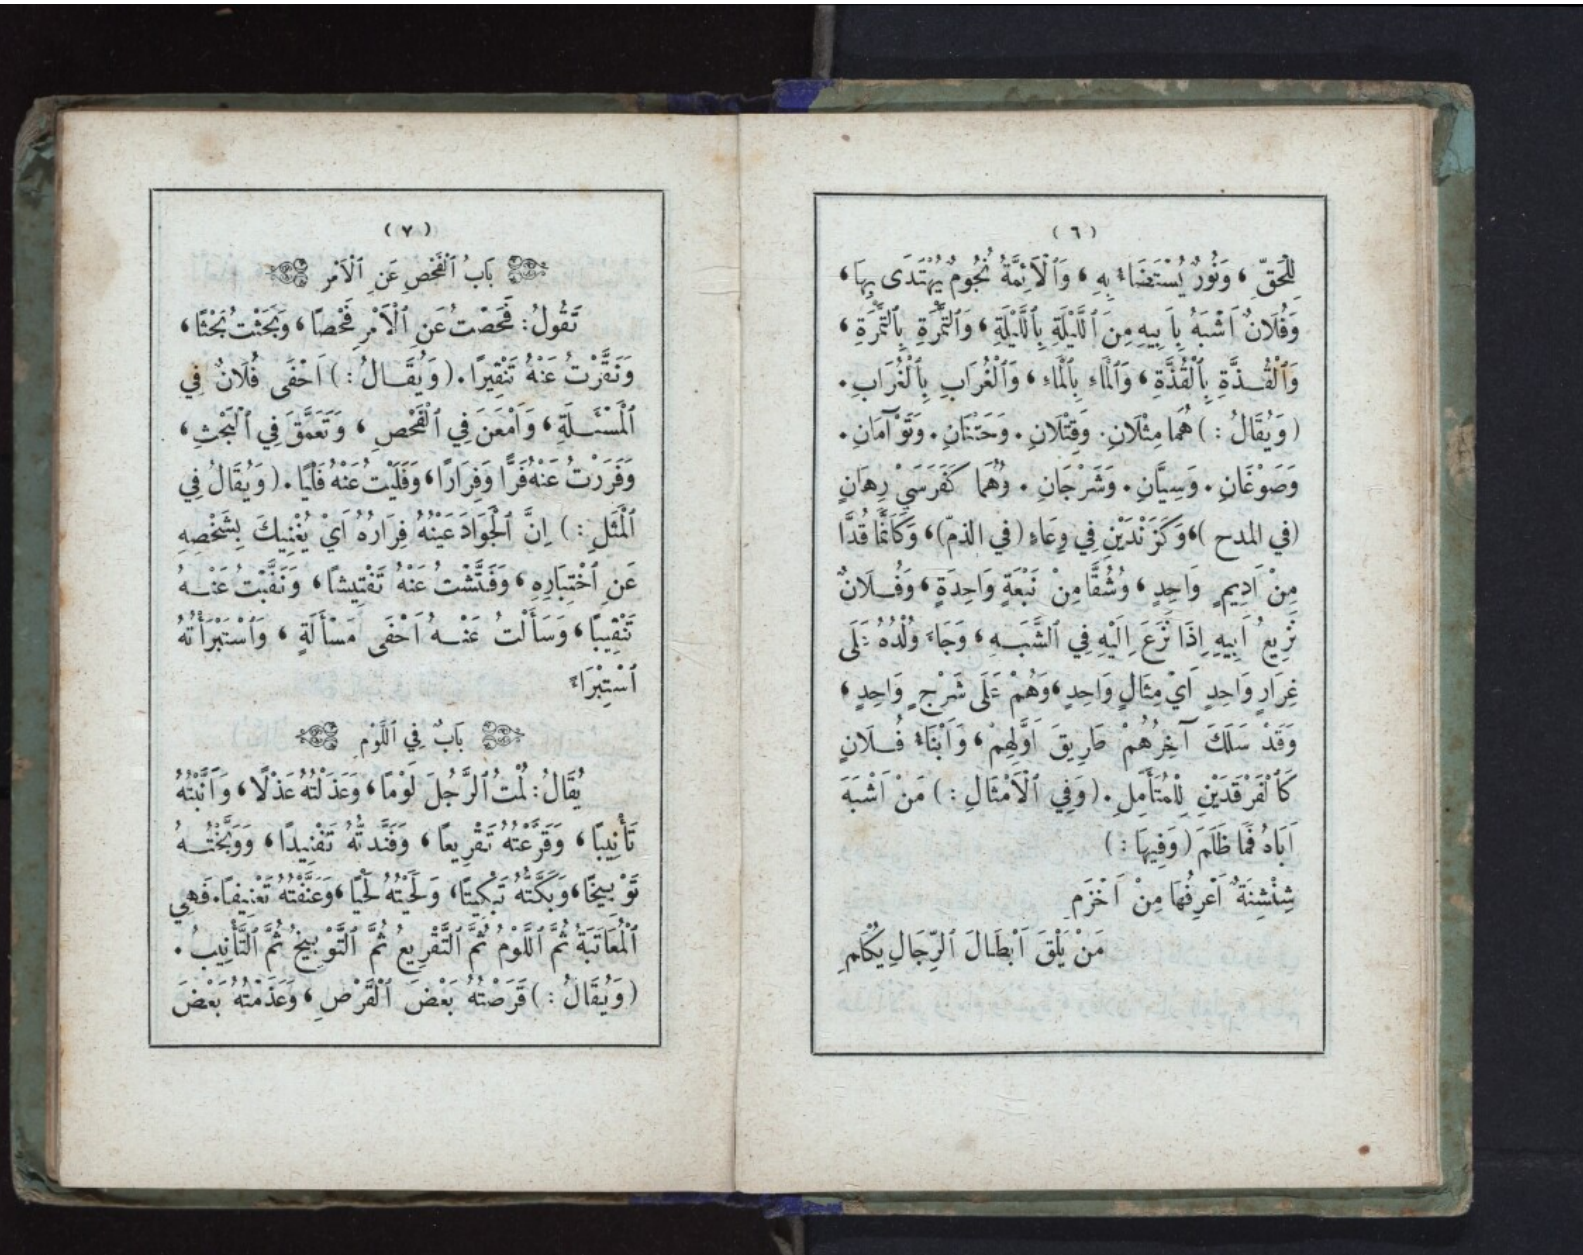 (٦)
لِلْحَقِّ ، وَنُورٌ يُسْتَضَاءُ بِهِ ، وَٱلْأَئِمَّةُ نُجُومٌ يُهْتَدَى بِهَا ،
وَفُلَانٌ اَشْبَهُ بِاَبِيهِ مِنَ ٱللَّيْلَةِ بِٱللَّيْلَةِ ، وَٱلتَّمْرَةِ بِٱلتَّمْرَةِ ،
وَٱلْقُذَّةِ بِٱلْقُذَّةِ ، وَٱلْمَاءِ بِٱلْمَاءِ ، وَٱلْغُرَابِ بِٱلْغُرَابِ .
(وَيُقَالُ :) هُمَا مِثْلَانِ . وَقِتْلَانِ . وَحَتْنَانِ . وَتَوْآمَانِ .
وَصَوْغَانِ . وَسِيَّانِ . وَشَرْجَانِ . وَهُمَا كَفَرَسَيْ رِهَانٍ
(في المدح) ، وَكَزَنْدَيْنِ فِي وِعَاءٍ (في الذمّ) ، وَكَأَنَّمَا قُدَّا
مِنْ اَدِيمٍ وَاحِدٍ ، وَشُقَّا مِنْ نَبْعَةٍ وَاحِدَةٍ ، وَفُلَانٌ
نَزِيعُ اَبِيهِ اِذَا نَزَعَ اِلَيْهِ فِي ٱلشَّبَهِ ، وَجَاءَ وُلْدُهُ عَلَى
غِرَارٍ وَاحِدٍ اَيْ مِثَالٍ وَاحِدٍ ، وَهُمْ عَلَى شَرْجٍ وَاحِدٍ ،
وَقَدْ سَلَكَ آخِرُهُمْ طَرِيقَ اَوَّلِهِمْ ، وَاَبْنَاءُ فُلَانٍ
كَٱلْفَرْقَدَيْنِ لِلْمُتَأَمِّلِ . (وَفِي ٱلْاَمْثَالِ :) مَنْ اَشْبَهَ
اَبَاهُ فَمَا ظَلَمَ (وَفِيهَا :)
شِنْشِنَةٌ اَعْرِفُهَا مِنْ اَخْزَمِ
مَنْ يَلْقَ اَبْطَالَ ٱلرِّجَالِ يُكْلَمِ
(٧)
بَابُ ٱلْفَحْصِ عَنِ ٱلْاَمْرِ
تَقُولُ : فَحَصْتُ عَنِ ٱلْاَمْرِ فَحْصًا ، وَبَحَثْتُ بَحْثًا ،
وَنَقَّرْتُ عَنْهُ تَنْقِيرًا . (وَيُقَالُ :) اَحْفَى فُلَانٌ فِي
ٱلْمَسْئَلَةِ ، وَاَمْعَنَ فِي ٱلْفَحْصِ ، وَتَعَمَّقَ فِي ٱلْبَحْثِ ،
وَفَرَرْتُ عَنْهُ فَرًّا وَفِرَارًا ، وَفَلَيْتُ عَنْهُ فَلْيًا . (وَيُقَالُ فِي
ٱلْمَثَلِ :) اِنَّ ٱلْجَوَادَ عَيْنُهُ فِرَارُهُ اَيْ يُغْنِيكَ بِشَخْصِهِ
عَنِ ٱخْتِبَارِهِ ، وَفَتَّشْتُ عَنْهُ تَفْتِيشًا ، وَنَقَّبْتُ عَنْهُ
تَنْقِيبًا ، وَسَأَلْتُ عَنْهُ اَحْفَى مَسْأَلَةٍ ، وَٱسْتَبْرَأْتُهُ
ٱسْتِبْرَاءً
بَابٌ فِي ٱللَّوْمِ
يُقَالُ : لُمْتُ ٱلرَّجُلَ لَوْمًا ، وَعَذَلْتُهُ عَذْلًا ، وَاَنَّبْتُهُ
تَأْنِيبًا ، وَقَرَّعْتُهُ تَقْرِيعًا ، وَفَنَّدتُّهُ تَفْنِيدًا ، وَوَبَّخْتُهُ
تَوْبِيخًا ، وَبَكَّتُّهُ تَبْكِيتًا ، وَلَحَيْتُهُ لَحْيًا ، وَعَنَّفْتُهُ تَعْنِيفًا . فَهِيَ
ٱلْمُعَاتَبَةُ ثُمَّ ٱللَّوْمُ ثُمَّ ٱلتَّقْرِيعُ ثُمَّ ٱلتَّوْبِيخُ ثُمَّ ٱلتَّأْنِيبُ .
(وَيُقَالُ :) قَرَصْتُهُ بَعْضَ ٱلْقَرْصِ ، وَعَذَمْتُهُ بَعْضَ